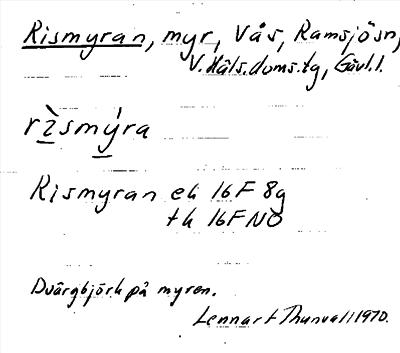 Rismyran, myr, Vås, Ramsjösn,
V. Häls. doms.tg, Gävl.l.
rìsmýra
Rismyran ek 16F 8g
tk 16F NO
Dvärgbjörk på myren.
Lennart Thunvall 1970.